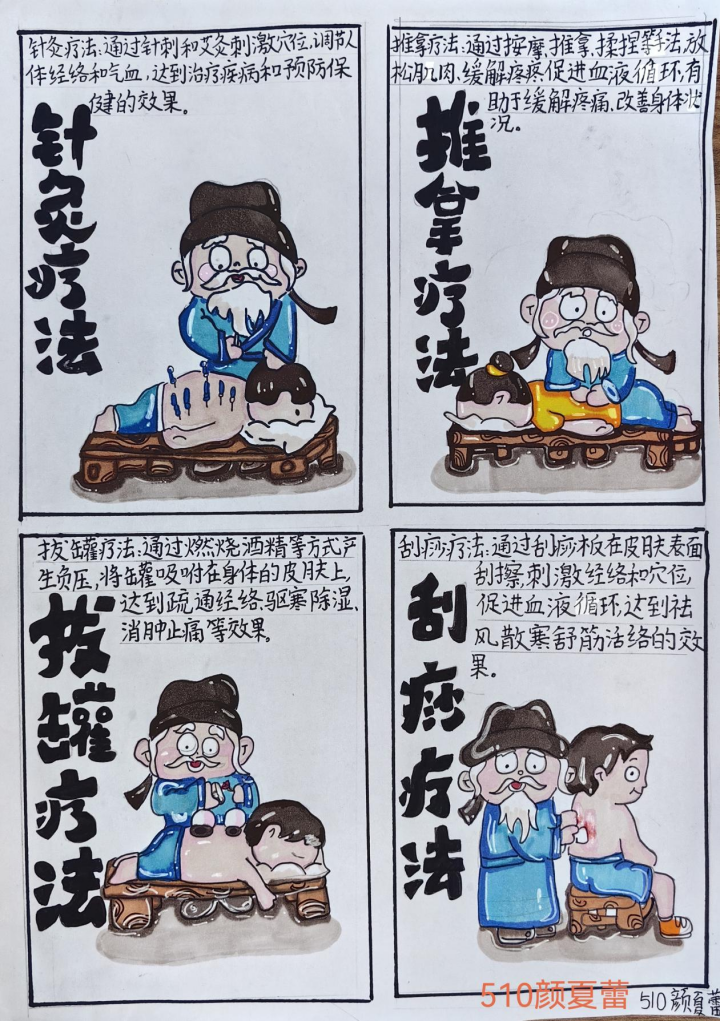 针灸疗法:通过针刺和艾灸刺激穴位,调节人
体经络和气血,达到治疗疾病和预防保
健的效果。
针灸疗法
推拿疗法:通过按摩、推拿、揉捏等手法,放
松肌肉、缓解疼疼促进血液循环,有
助于缓解疼痛、改善身体状
况。
推拿疗法
拔罐疗法:通过燃烧酒精等方式产
生负压,将罐吸咐在身体的皮肤上,
达到疏通经络、驱寒除湿、
消肿止痛等效果。
拔罐疗法
刮痧疗法:通过刮痧板在皮肤表面
刮擦,刺激经络和穴位,
促进血液循环,达到祛
风散寒舒筋活络的效
果。
刮痧疗法
510颜夏蕾
510颜夏蕾